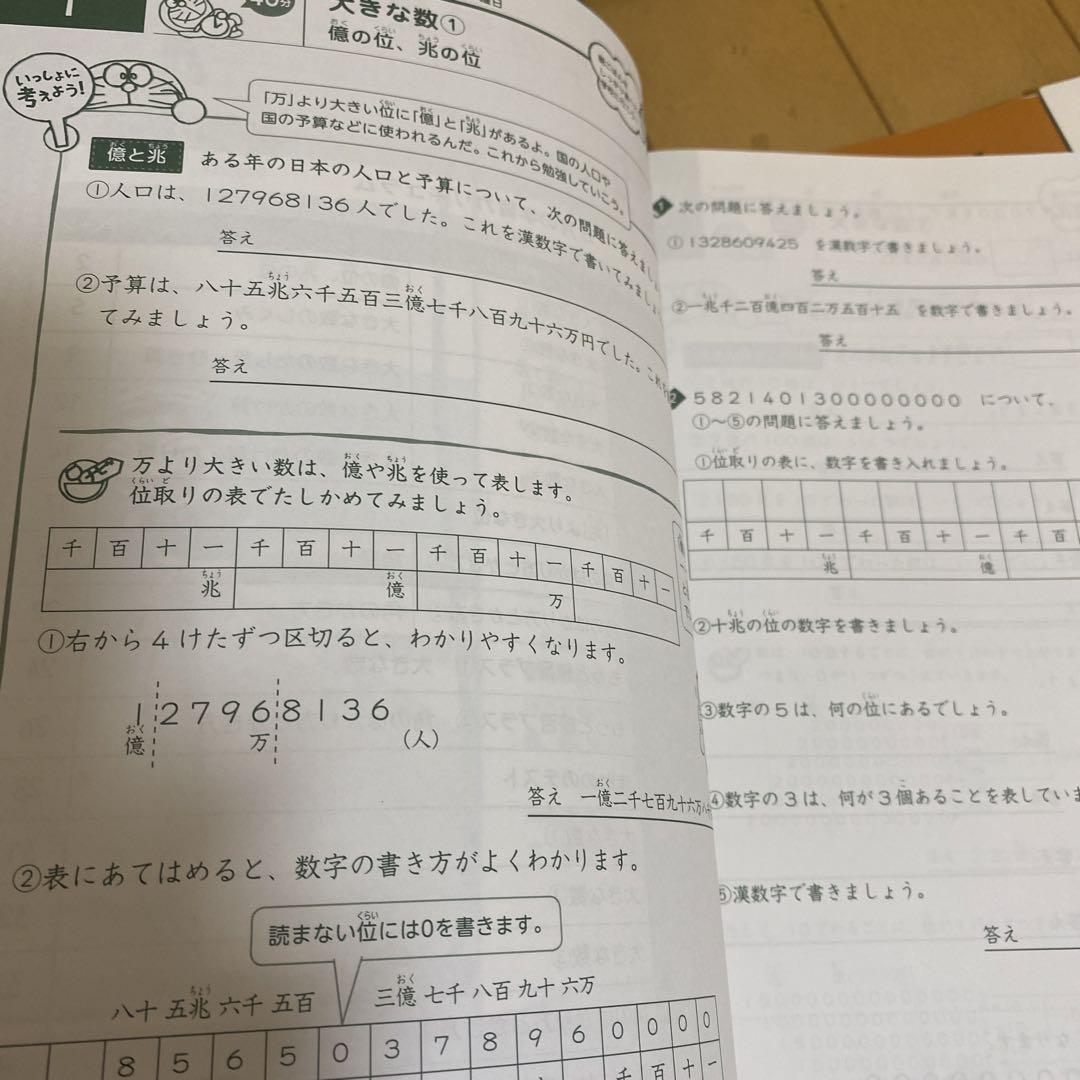 40分
大きな数①
億の位、兆の位
いっしょに
考えよう!
「万」より大きい位に「億」と「兆」があるよ。国の人口や
国の予算などに使われるんだ。これから勉強していこう。
億と兆
ある年の日本の人口と予算について、次の問題に答えましょ
①人口は、127968136人でした。これを漢数字で書いてみましょ
答え
②予算は、八十五兆六千五百三億七千八百九十六万円でした。これ
てみましょう。
答え
万より大きい数は、億や兆を使って表します。
位取りの表でたしかめてみましょう。
千 百 十 一 千 百 十 一 千 百 十 一 千 百 十 一
兆 億 万
①右から4けたずつ区切ると、わかりやすくなります。
127968136
億 万 (人)
答え 一億二千七百九十六万八
②表にあてはめると、数字の書き方がよくわかります。
読まない位には0を書きます。
八十五兆六千五百 三億七千八百九十六万
8 5 6 5 0 3 7 8 9 6 0 0 0 0
千 百 十 一
1 次の問題に答えましょう。
①1328609425 を漢数字で書きましょう。
答え
②一兆千二百億四百二万五百十五 を数字で書きましょう。
答え
2 5821401300000000 について、
①~⑤の問題に答えましょう。
①位取りの表に、数字を書き入れましょう。
千 百 十 一 千 百 十 一 千 百
兆 億
②十兆の位の数字を書きましょう。
③数字の5は、何の位にあるでしょう。
④数字の3は、何が3個あることを表していま
⑤漢数字で書きましょう。
答え